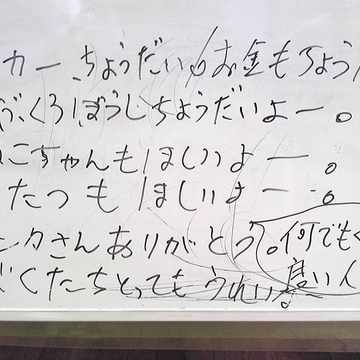 カー、ちょうだい お金もちょう
ぶくろぼうしちょうだいよー。
こちゃんもほしいよー。
たつもほしいよー。
ンタさんありがとう。何でもく
くたちとっても 良い人